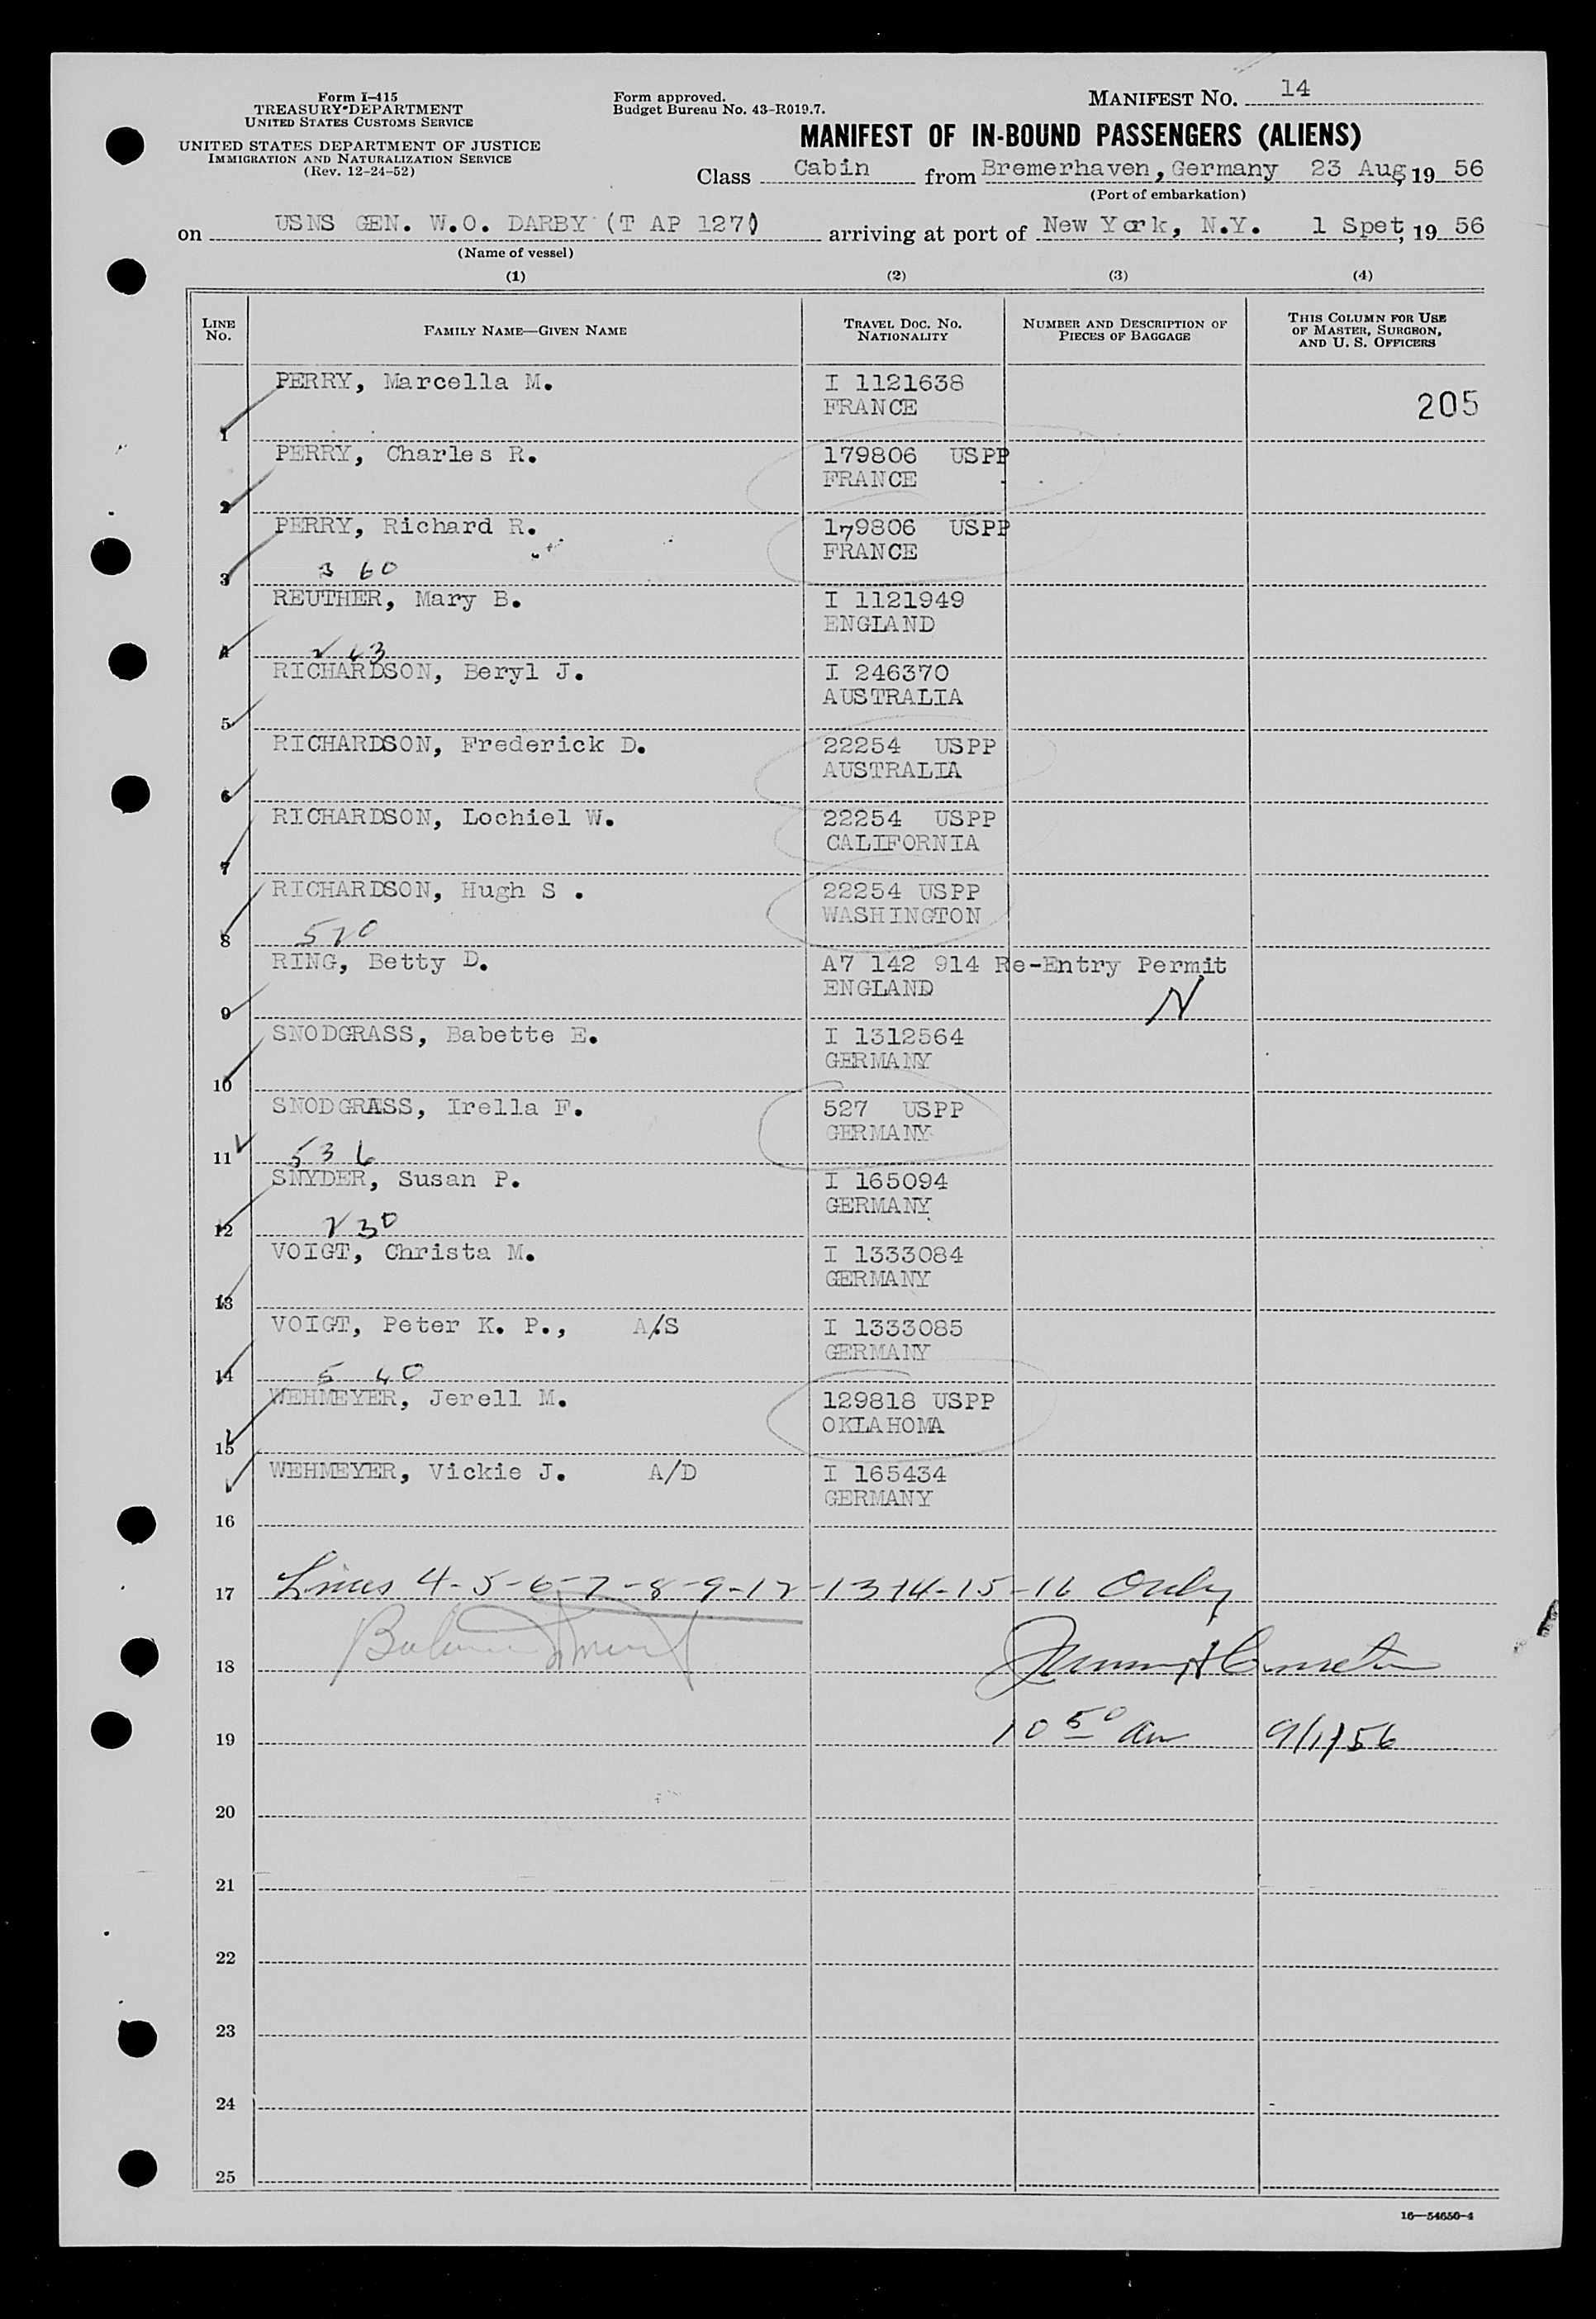 Form I-415
TREASURY DEPARTMENT
UNITED STATES CUSTOMS SERVICE
UNITED STATES DEPARTMENT OF JUSTICE
IMMIGRATION AND NATURALIZATION SERVICE
(Rev. 12-24-52)
Form approved.
Budget Bureau No. 43-R019.7.
MANIFEST NO. 14
MANIFEST OF IN-BOUND PASSENGERS (ALIENS)
Class Cabin from Bremerhaven, Germany 23 Aug, 19 56
(Port of embarkation)
on USNS GEN. W.O. DARBY (T AP 127) arriving at port of New York, N.Y. 1 Spet, 19 56
(Name of vessel)
(1) (2) (3) (4)
LINE NO. FAMILY NAME—GIVEN NAME TRAVEL DOC. NO. NATIONALITY NUMBER AND DESCRIPTION OF PIECES OF BAGGAGE THIS COLUMN FOR USE OF MASTER, SURGEON, AND U. S. OFFICERS
PERRY, Marcella M. I 1121638
FRANCE 205
1
PERRY, Charles R. 179806 USPP
FRANCE
2
PERRY, Richard R. 179806 USPP
FRANCE
3 3 60
REUTHER, Mary B. I 1121949
ENGLAND
4
RICHARDSON, Beryl J. I 246370
AUSTRALIA
5
RICHARDSON, Frederick D. 22254 USPP
AUSTRALIA
6
RICHARDSON, Lochiel W. 22254 USPP
CALIFORNIA
7
RICHARDSON, Hugh S . 22254 USPP
WASHINGTON
8 520
RING, Betty D. A7 142 914 Re-Entry Permit
ENGLAND N
9
SNODGRASS, Babette E. I 1312564
GERMANY
10
SNODGRASS, Irella F. 527 USPP
GERMANY
11 536
SNYDER, Susan P. I 165094
GERMANY
12 230
VOIGT, Christa M. I 1333084
GERMANY
13
VOIGT, Peter K. P., A/S I 1333085
GERMANY
14 5 40
WEHMEYER, Jerell M. 129818 USPP
OKLAHOMA
15
WEHMEYER, Vickie J. A/D I 165434
GERMANY
16
17 Lines 4-5-6-7-8-9-12-13-14-15-16 Only
18
19 10 50 am 9/1/56
20
21
22
23
24
25
16—54650-4